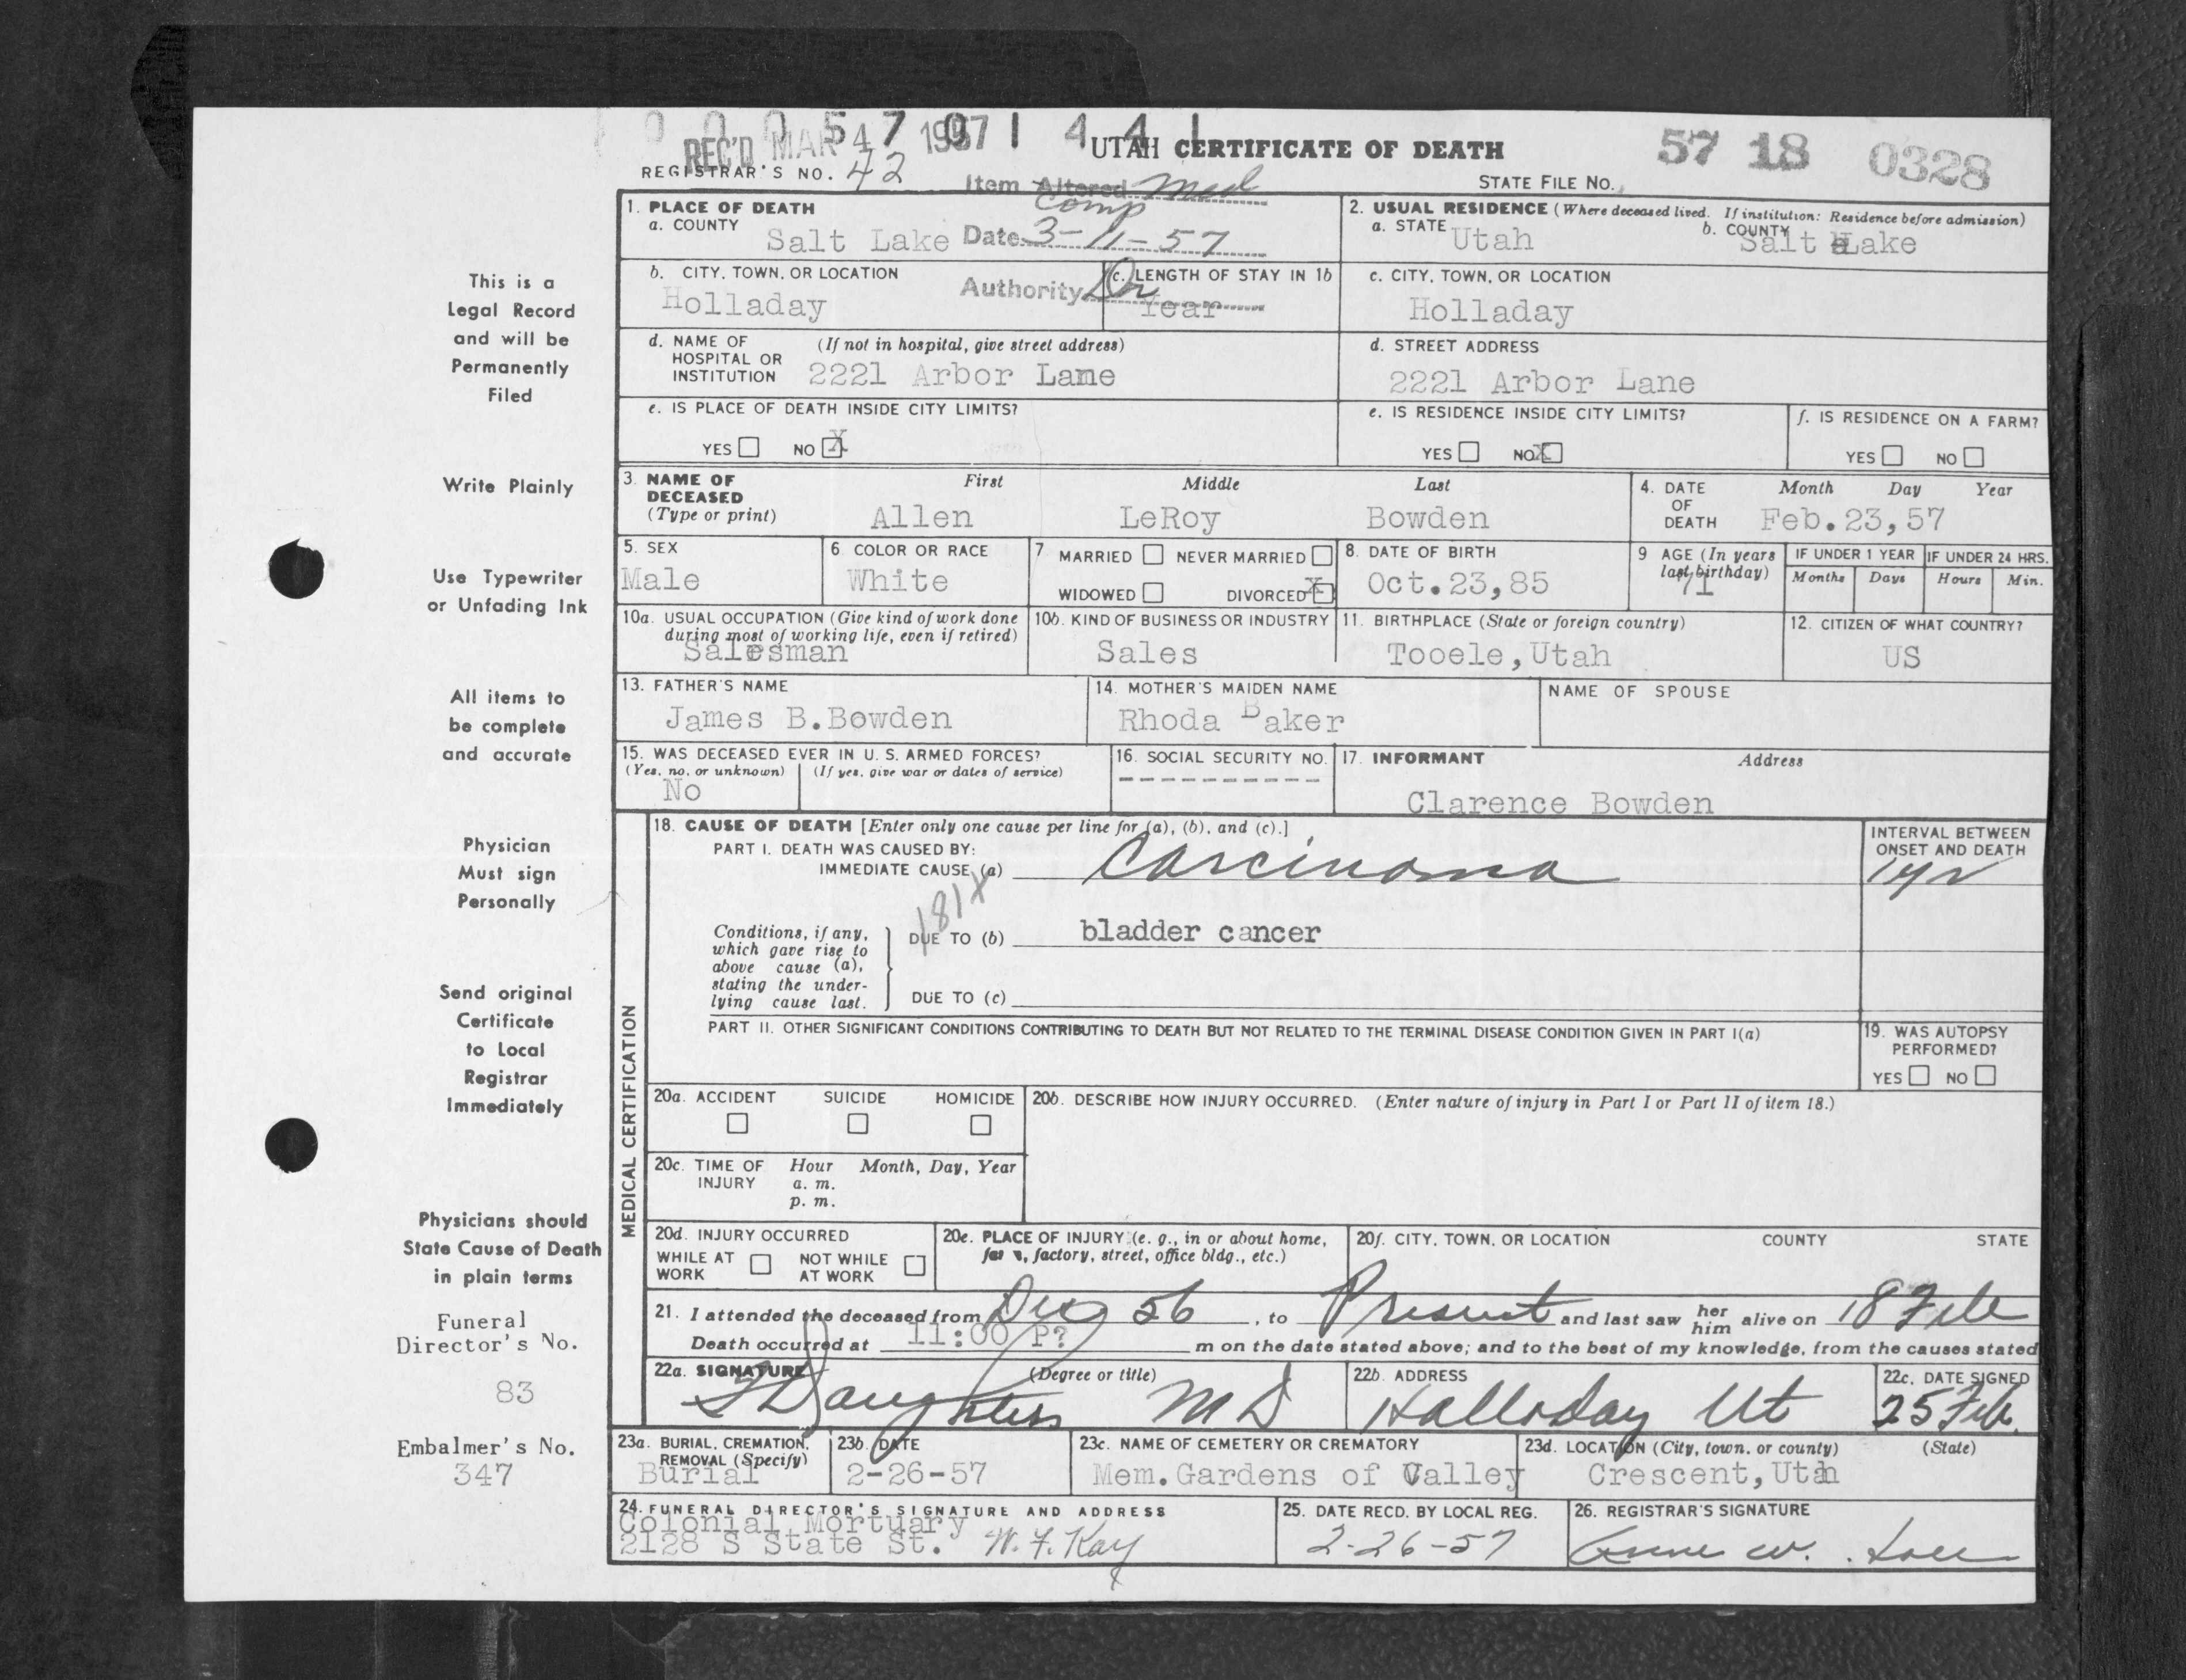 0 0 0 5 7 0 1 4 4 1
REC'D MAR 4 1957
UTAH CERTIFICATE OF DEATH
57 18 0328
REGISTRAR'S NO. 42
STATE FILE NO.
Item Altered Med
Comp
Date 3-11-57
Authority Dr
1. PLACE OF DEATH
a. COUNTY Salt Lake
2. USUAL RESIDENCE (Where deceased lived. If institution: Residence before admission)
a. STATE Utah b. COUNTY Salt Lake
b. CITY, TOWN, OR LOCATION Holladay
c. LENGTH OF STAY IN 1b Year
c. CITY, TOWN, OR LOCATION Holladay
d. NAME OF HOSPITAL OR INSTITUTION (If not in hospital, give street address) 2221 Arbor Lane
d. STREET ADDRESS 2221 Arbor Lane
e. IS PLACE OF DEATH INSIDE CITY LIMITS?
YES NO X
e. IS RESIDENCE INSIDE CITY LIMITS?
YES NO X
f. IS RESIDENCE ON A FARM?
YES NO
3. NAME OF DECEASED (Type or print)
First Middle Last
Allen LeRoy Bowden
4. DATE OF DEATH Month Day Year
Feb.23,57
5. SEX Male
6. COLOR OR RACE White
7 MARRIED NEVER MARRIED
WIDOWED DIVORCED X
8. DATE OF BIRTH Oct.23,85
9 AGE (In years last birthday) 71
IF UNDER 1 YEAR Months Days
IF UNDER 24 HRS. Hours Min.
10a. USUAL OCCUPATION (Give kind of work done during most of working life, even if retired)
Salesman
10b. KIND OF BUSINESS OR INDUSTRY
Sales
11. BIRTHPLACE (State or foreign country)
Tooele, Utah
12. CITIZEN OF WHAT COUNTRY?
US
13. FATHER'S NAME
James B.Bowden
14. MOTHER'S MAIDEN NAME
Rhoda Baker
NAME OF SPOUSE
15. WAS DECEASED EVER IN U. S. ARMED FORCES?
(Yes, no, or unknown) (If yes, give war or dates of service)
No
16. SOCIAL SECURITY NO.
----------
17. INFORMANT Address
Clarence Bowden
MEDICAL CERTIFICATION
18. CAUSE OF DEATH [Enter only one cause per line for (a), (b), and (c).]
PART I. DEATH WAS CAUSED BY:
IMMEDIATE CAUSE (a) Carcinoma
INTERVAL BETWEEN ONSET AND DEATH
1 yr
181X
Conditions, if any, which gave rise to above cause (a), stating the underlying cause last.
DUE TO (b) bladder cancer
DUE TO (c)
PART II. OTHER SIGNIFICANT CONDITIONS CONTRIBUTING TO DEATH BUT NOT RELATED TO THE TERMINAL DISEASE CONDITION GIVEN IN PART I(a)
19. WAS AUTOPSY PERFORMED?
YES NO
20a. ACCIDENT SUICIDE HOMICIDE
20b. DESCRIBE HOW INJURY OCCURRED. (Enter nature of injury in Part I or Part II of item 18.)
20c. TIME OF INJURY Hour Month, Day, Year
a. m.
p. m.
20d. INJURY OCCURRED
WHILE AT WORK NOT WHILE AT WORK
20e. PLACE OF INJURY (e. g., in or about home, farm, factory, street, office bldg., etc.)
20f. CITY, TOWN, OR LOCATION COUNTY STATE
21. I attended the deceased from Dec 56, to Present and last saw her him alive on 18 Feb
Death occurred at 11:00 P? m on the date stated above; and to the best of my knowledge, from the causes stated
22a. SIGNATURE (Degree or title)
Daughters MD
22b. ADDRESS
Holladay Ut
22c. DATE SIGNED
25 Feb.
23a. BURIAL, CREMATION, REMOVAL (Specify)
Burial
23b. DATE
2-26-57
23c. NAME OF CEMETERY OR CREMATORY
Mem.Gardens of Valley
23d. LOCATION (City, town, or county) (State)
Crescent, Utah
24. FUNERAL DIRECTOR'S SIGNATURE AND ADDRESS
Colonial Mortuary
2128 S State St. W. F. Kay
25. DATE RECD. BY LOCAL REG.
2-26-57
26. REGISTRAR'S SIGNATURE
Anne W.
This is a
Legal Record
and will be
Permanently
Filed
Write Plainly
Use Typewriter
or Unfading Ink
All items to
be complete
and accurate
Physician
Must sign
Personally
Send original
Certificate
to Local
Registrar
Immediately
Physicians should
State Cause of Death
in plain terms
Funeral
Director's No.
83
Embalmer's No.
347